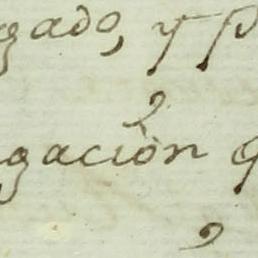 gado, y p
gación q